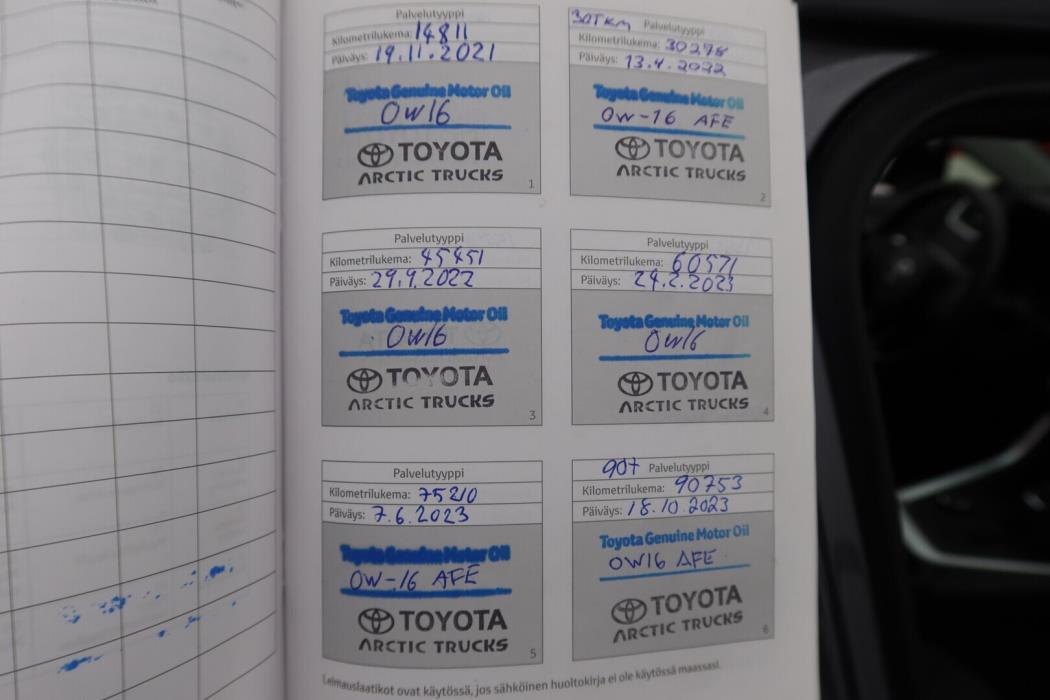 Palvelutyyppi
Kilometrilukema: 14811
Päiväys: 19.11.2021
Toyota Genuine Motor Oil
0W16
TOYOTA
ARCTIC TRUCKS
1
30TKM Palvelutyyppi
Kilometrilukema: 30278
Päiväys: 13.4.2022
Toyota Genuine Motor Oil
0W-16 AFE
TOYOTA
ARCTIC TRUCKS
2
Palvelutyyppi
Kilometrilukema: 45451
Päiväys: 29.9.2022
Toyota Genuine Motor Oil
0W16
TOYOTA
ARCTIC TRUCKS
3
Palvelutyyppi
Kilometrilukema: 60571
Päiväys: 24.2.2023
Toyota Genuine Motor Oil
0W16
TOYOTA
ARCTIC TRUCKS
4
Palvelutyyppi
Kilometrilukema: 75210
Päiväys: 7.6.2023
Toyota Genuine Motor Oil
0W-16 AFE
TOYOTA
ARCTIC TRUCKS
5
90T Palvelutyyppi
Kilometrilukema: 90753
Päiväys: 18.10.2023
Toyota Genuine Motor Oil
0W16 AFE
TOYOTA
ARCTIC TRUCKS
6
Leimauslaatikot ovat käytössä, jos sähköinen huoltokirja ei ole käytössä maassasi.